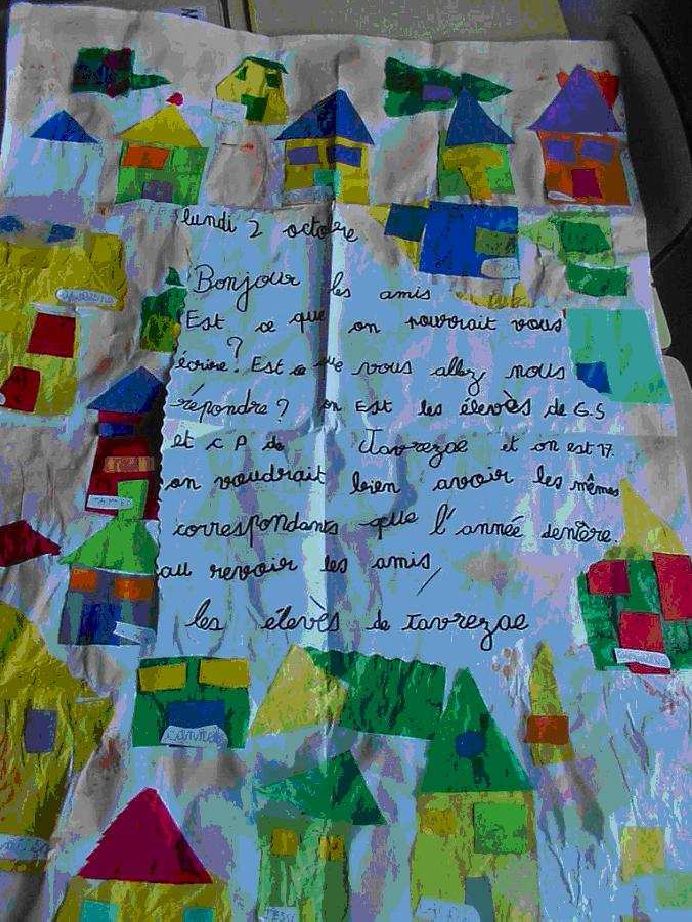 lundi 2 octobre
Bonjour les amis
Est ce que on pourrait vous
écrire? Est ce que vous allez nous
répondre? on Est les élevès de G.S
et C P de Javrezac et on est 17.
on voudrait bien avoir les mêmes
correspondants que l'année dentère.
au revoir les amis,
les élevès de Javrezac